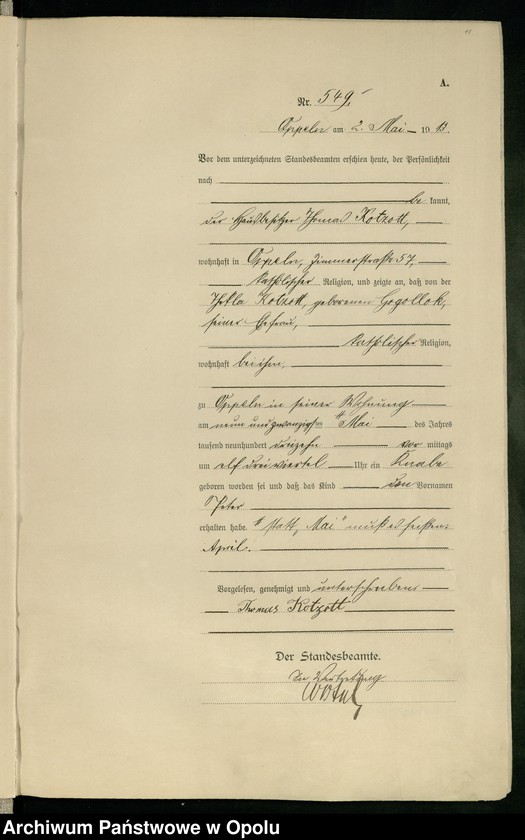 A.
Nr. 549.
Oppeln am 2. Mai 1913.
Vor dem unterzeichneten Standesbeamten erschien heute, der Persönlichkeit
nach
be kannt,
der Hausbesitzer Thomas Kotzott,
wohnhaft in Oppeln, Zimmerstraße 57,
katholischer Religion, und zeigte an, daß von der
Thekla Kotzott, geborenen Gogollok,
seiner Ehefrau,
katholischer Religion,
wohnhaft bei ihm,
zu Oppeln in seiner Wohnung
am neun und zwanzigsten # Mai des Jahres
tausend neunhundert dreizehn vor mittags
um elf dreiviertel Uhr ein Knabe
geboren worden sei und daß das Kind den Vornamen
Peter
erhalten habe. # statt „Mai" muß es heißen:
April.
Vorgelesen, genehmigt und unterschrieben
Thomas Kotzott
Der Standesbeamte.
In Vertretung
Archiwum Państwowe w Opolu